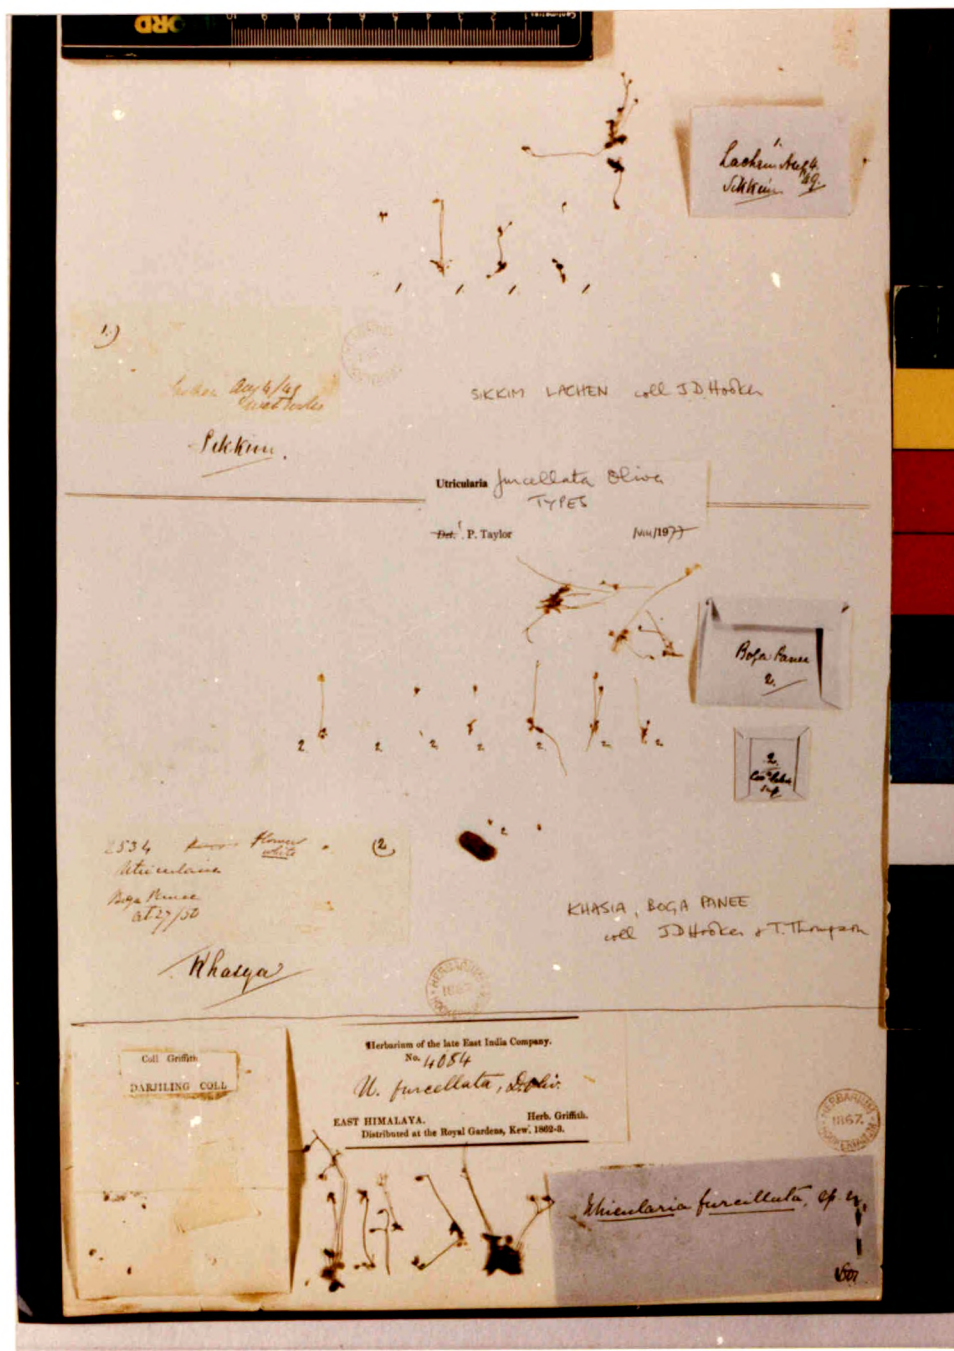 10 9 8 7 6 5 4 3 2 1
1.
Lachen Aug 4.
Sikkim 49.
1 1 1 1
1.)
Lachen Aug 4/49
Sikkim.
SIKKIM LACHEN coll J.D. Hooker
Utricularia furcellata Oliver
TYPES
Det. ! P. Taylor
/1977
Boga Panee
2.
2 2 2 2 2 2 2
2.
2
2534 Flowers (2
white
Utricularia
Boga Panee
Oct 27/50
Khasya
KHASIA, BOGA PANEE
coll J D Hooker & T. Thompson
HERBARIUM
1867.
Coll Griffith
DARJILING COLL
Herbarium of the late East India Company.
No. 4084
U. furcellata, D. Oliv.
EAST HIMALAYA. Herb. Griffith.
Distributed at the Royal Gardens, Kew. 1862-3.
HERBARIUM
1867.
Utricularia furcillata, sp. n.